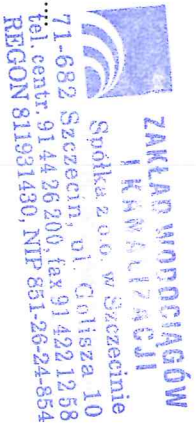 ZAKŁAD WODOCIĄGÓW
I KANALIZACJI
Spółka z o.o. w Szczecinie
71-682 Szczecin, ul. Golisza 10
tel. centr. 91 44 26 200, fax 91 42 21 258
REGON 811931430, NIP 851-26-24-854